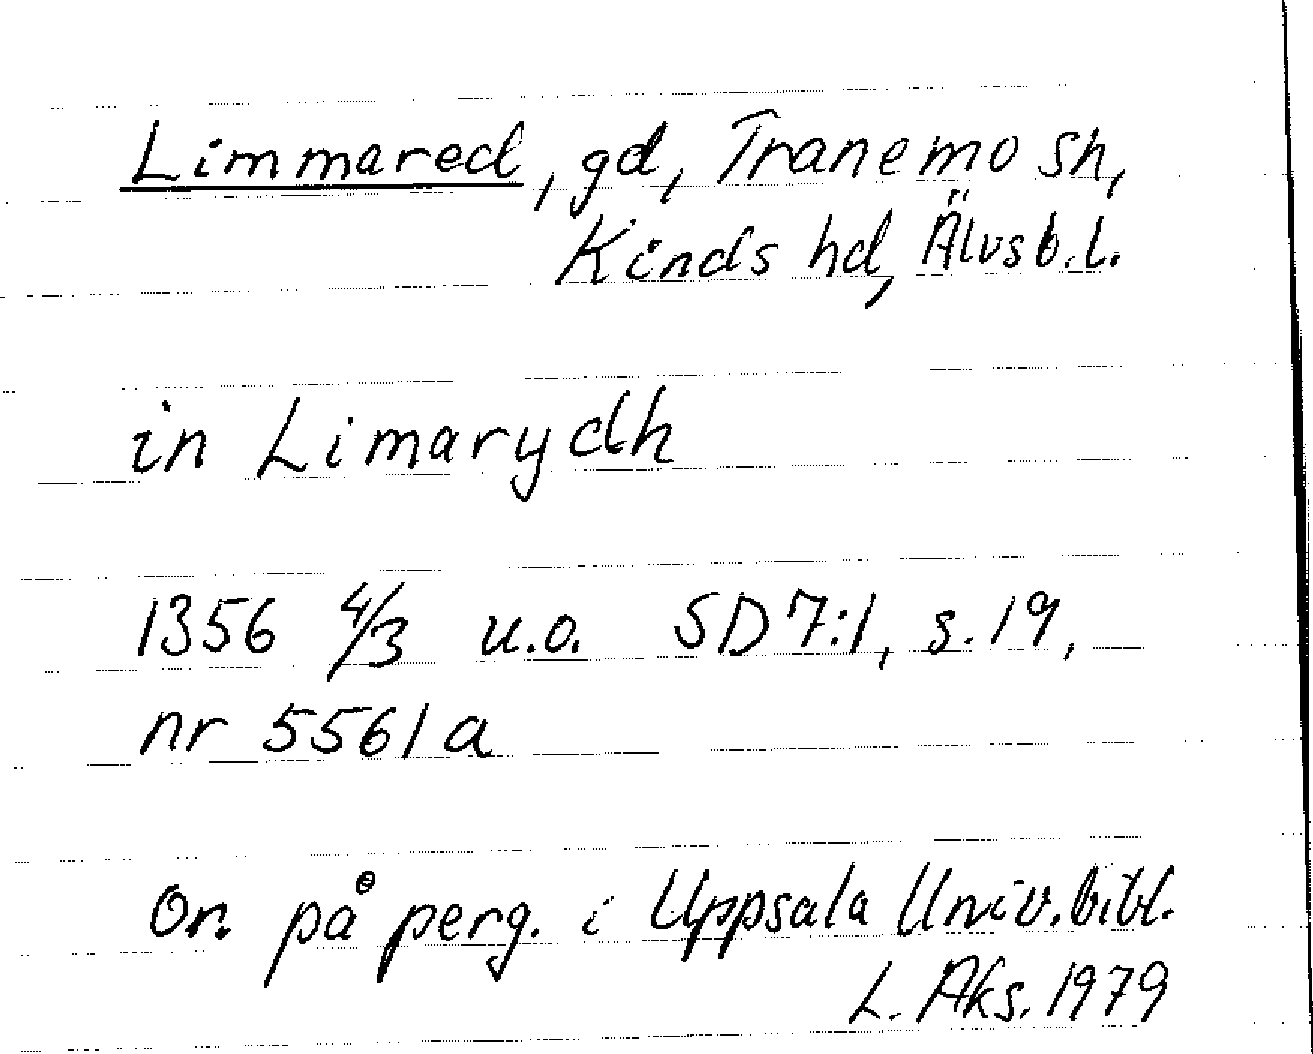 Limmared, gd, Tranemo sn,
Kinds hd, Älvsb.l.
in Limarydh
1356 4/3 u.o. SD 7:1, s. 19,
nr 5561 a
Or. på perg. i Uppsala Univ.bibl.
L. Aks. 1979